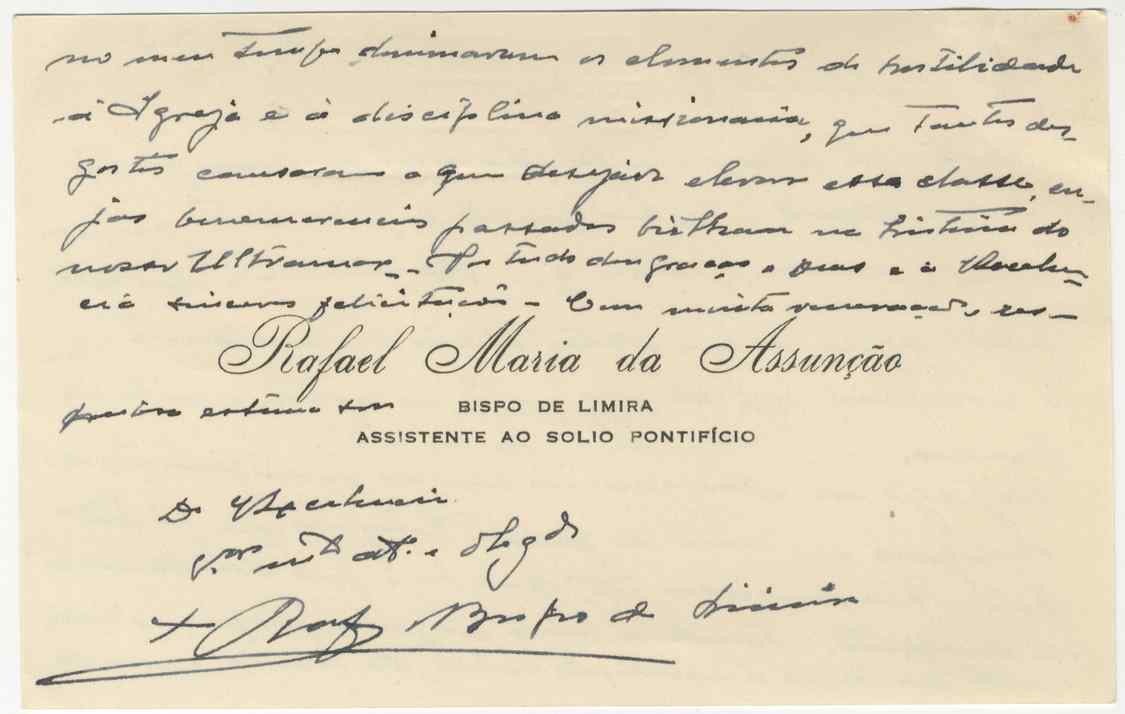 no meu tempo dominavam os elementos de hostilidade
à Igreja e à disciplina missionaria, que tantos des-
gostos causaram a quem desejava elevar essa classe, cu-
jas benemerencias passadas brilham na historia do
nosso Ultramar. - Por tudo dou graças a Deus e a V. Excelen-
cia sinceras felicitações - Com muita veneração, res-
Rafael Maria da Assunção
peitosa estima sou
BISPO DE LIMIRA
ASSISTENTE AO SOLIO PONTIFÍCIO
De V. Excelencia
at.º e obgdo
+ Raf Bispo de Limira